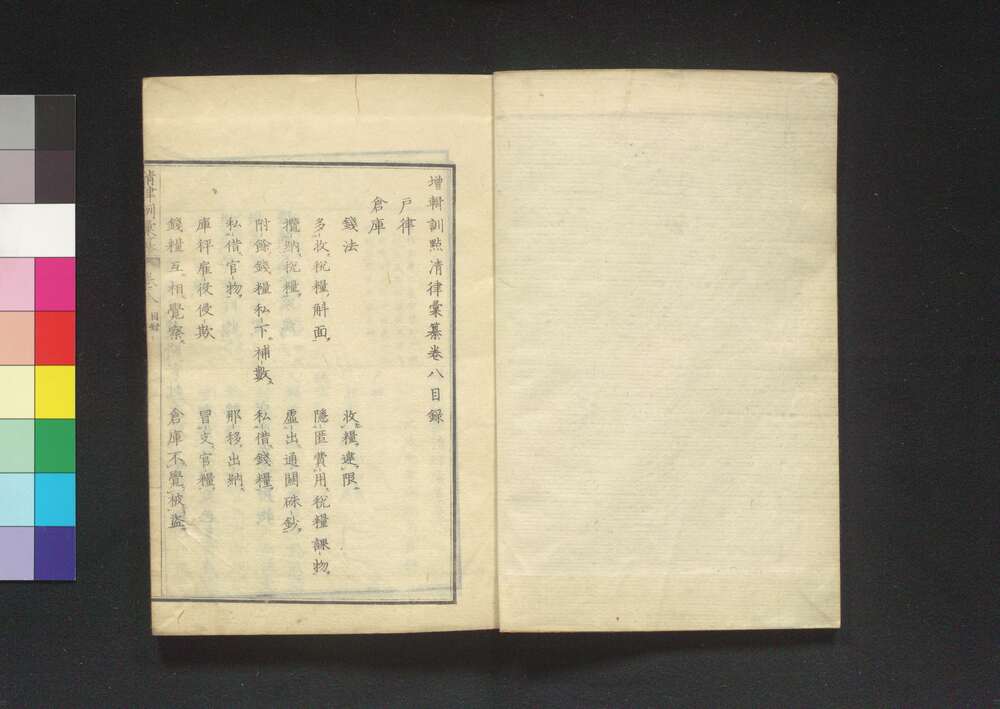 増輯訓點清律彙纂卷八目録
戸律
倉庫
錢法 收糧違限
多收税糧斛面 隱匿費用税糧課物
攬納税糧 虛出通關硃鈔
附餘錢糧私下補數 私借錢糧
私借官物 那移出納
庫秤雇役侵欺 冒支官糧
錢糧互相覺察 倉庫不覺被盜
清律訓彙 卷八 目録